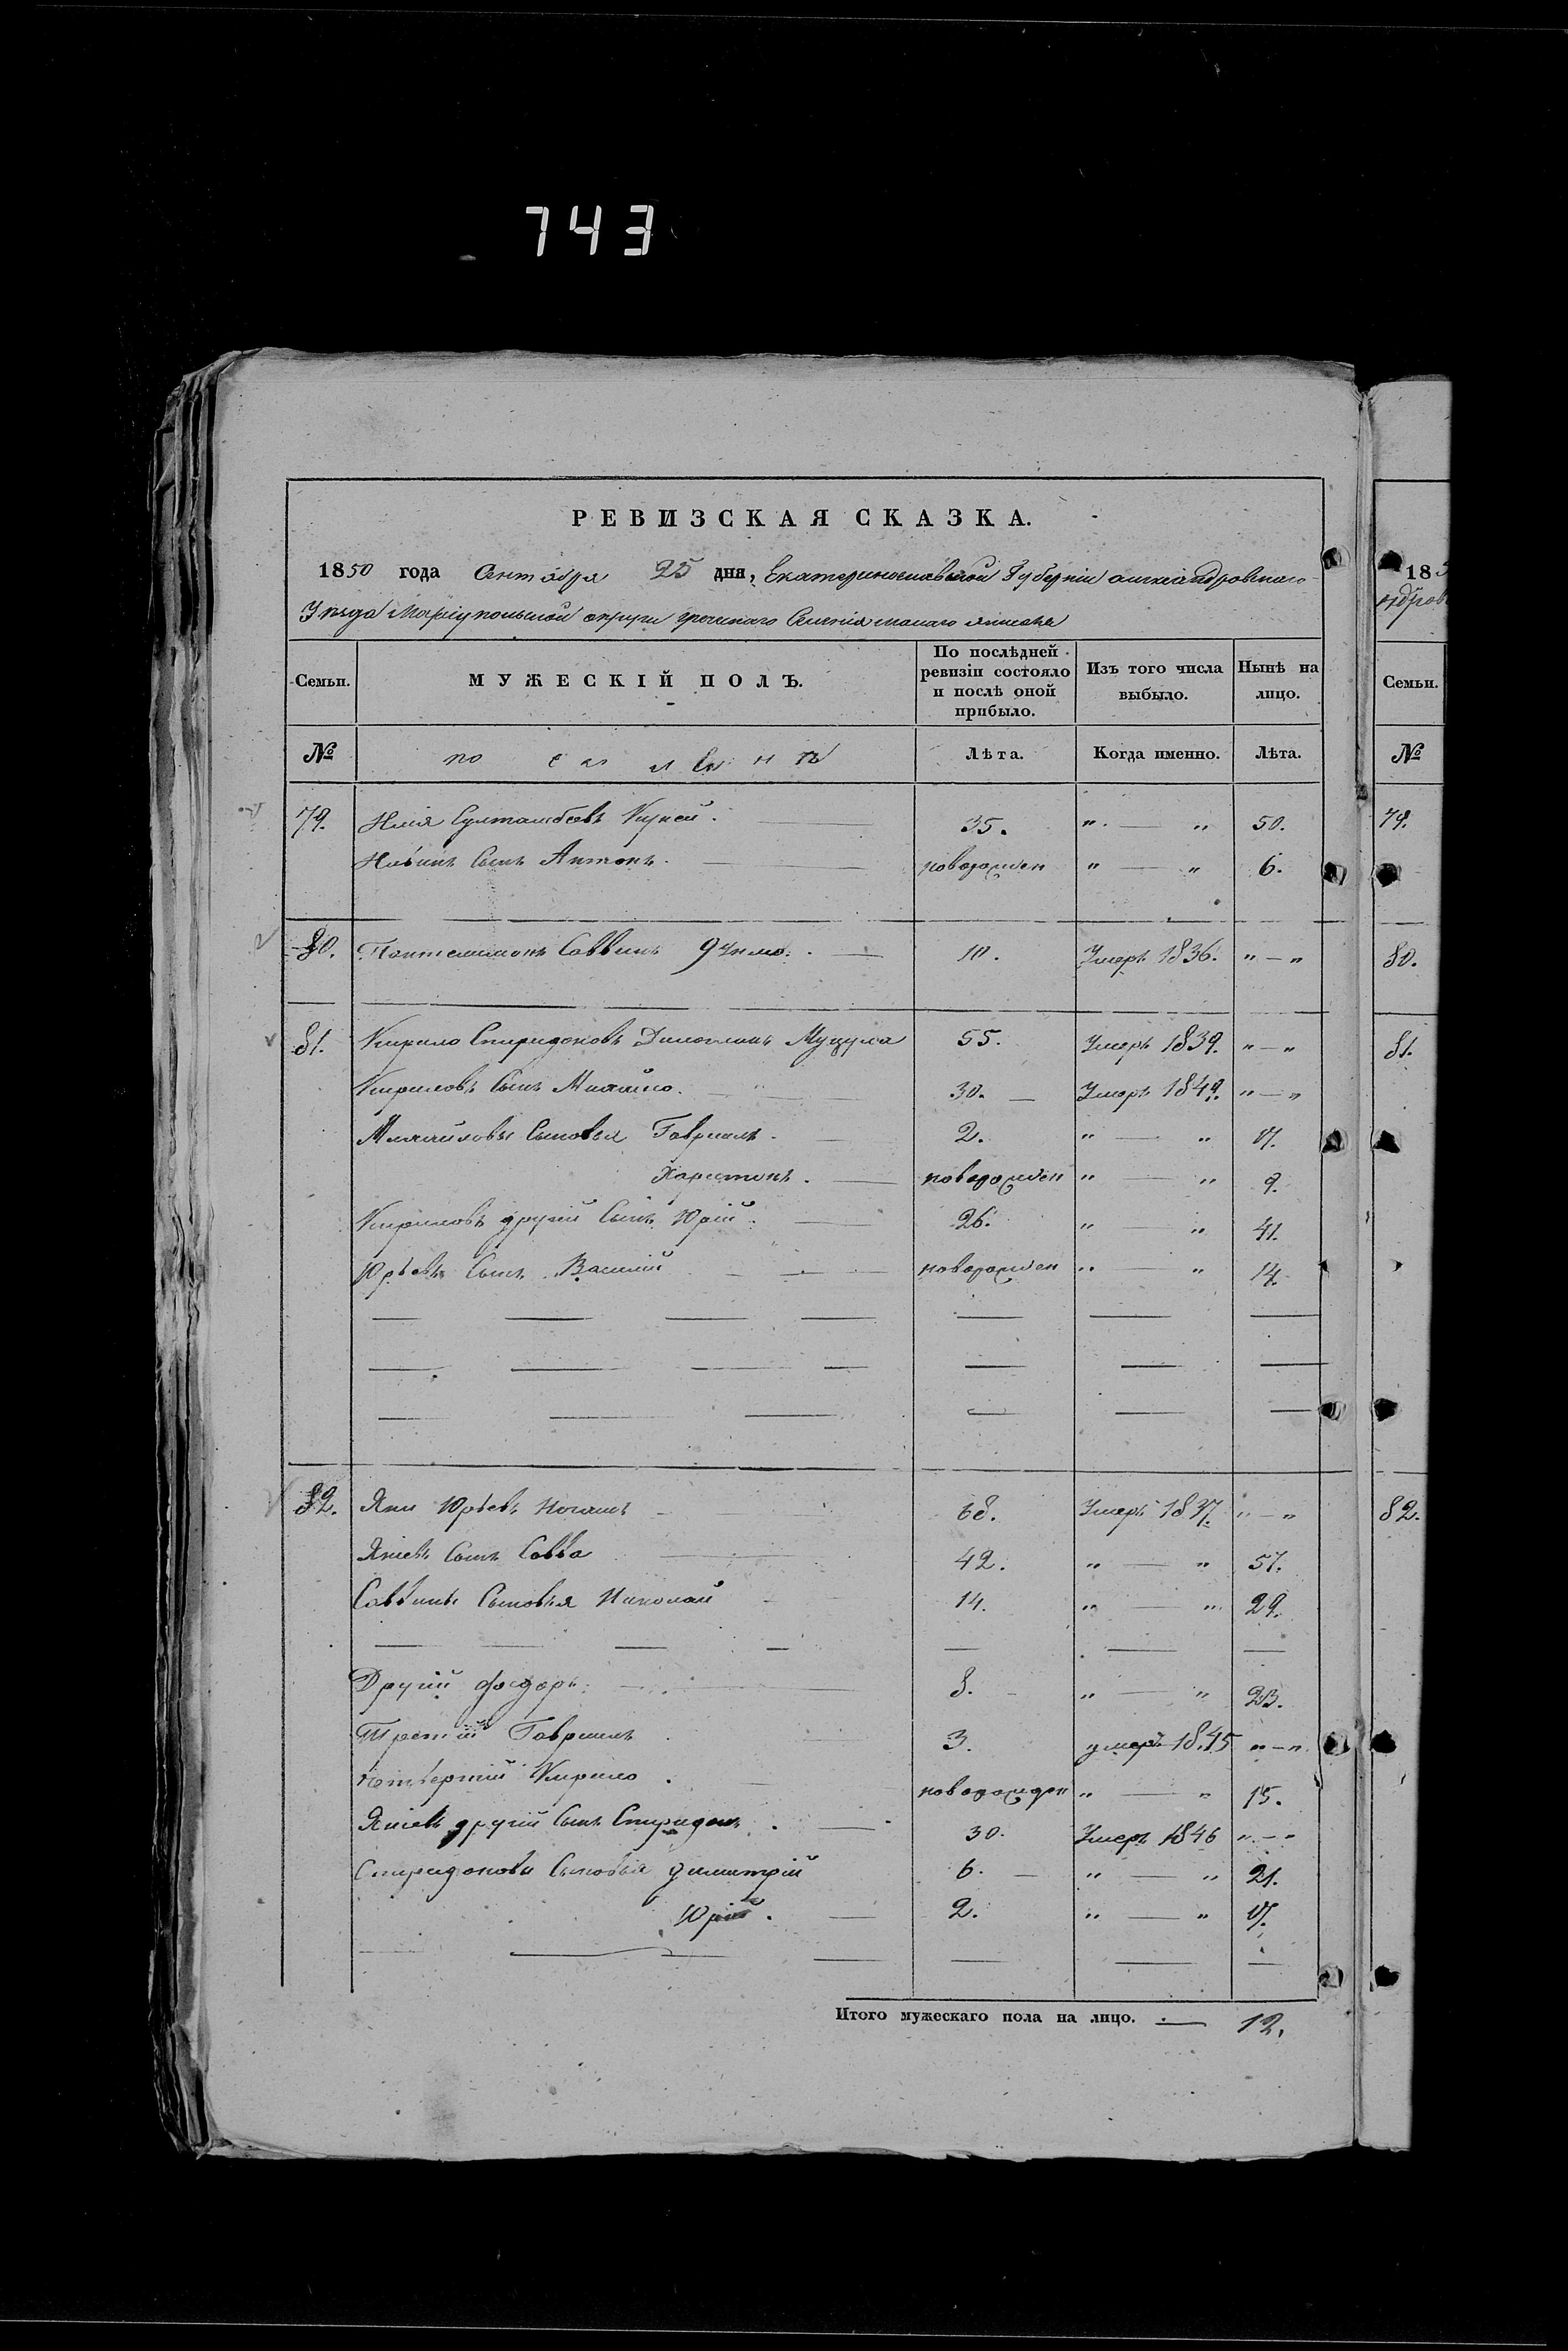 743
РЕВИЗСКАЯ СКАЗКА.
1850 года Сентября 25 дня, Екатеринославской Губерніи александровскаго
Уѣзда Маріупольской округи греческаго Селенія малаго янисаля
Семьи. МУЖЕСКІЙ ПОЛЪ. По послѣдней ревизіи состояло и послѣ оной прибыло. Изъ того числа выбыло. Нынѣ на лицо. Семьи.
№ Лѣта. Когда именно. Лѣта. №
79. Илія Кирей. 35. " — " 50. 79.
Ильинъ Сынъ Антонъ. новорожден " — " 6.
80. Пантелимонъ Саввинъ 10. Умеръ 1836. " — " 80.
81. Кирило Спиридоновъ Муцума 55. Умеръ 1839. " — " 81.
Кириловъ Сынъ Михайло. 30. Умеръ 1849. " — "
Михайловы Сыновья Гавриилъ. 2. " — " 17.
Харитонъ. новорожден " — " 9.
Кириловъ другій Сынъ Юрій. 26. " — " 41.
Юрьевъ Сынъ Василій новорожден " — " 14.
82. Яни Юрьевъ 68. Умеръ 1837. " — " 82.
Яніевъ Сынъ Савва 42. " — " 57.
Саввины Сыновья Николай 14. " — " 29.
Другій Федоръ. 8. " — " 23.
Третій Гавриилъ 3. умеръ 1845 " — "
Четвертій Кирило. новорожден " — " 15.
Яніевъ другій Сынъ Спиридонъ. 30. Умеръ 1846 " — "
Спиридоновы Сыновья Димитрій 6. " — " 21.
Юрій. 2. " — " 17.
Итого мужескаго пола на лицо. — 12.